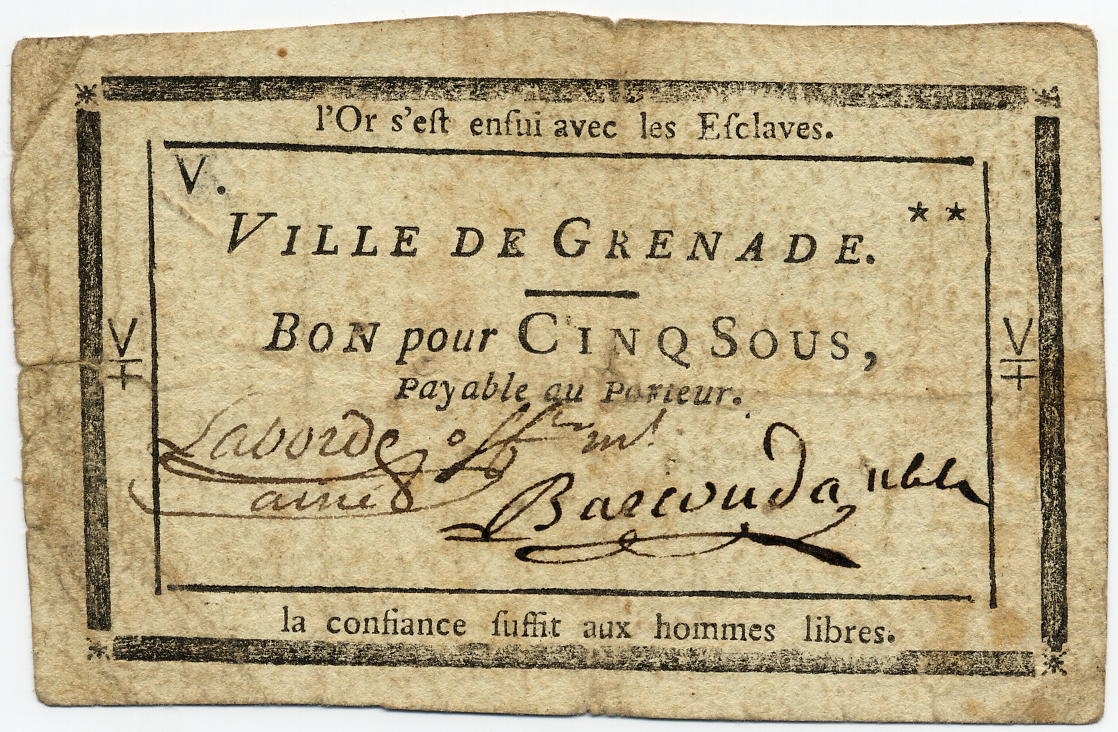 l'Or s'eſt enſui avec les Eſclaves.
V.
**
VILLE DE GRENADE.
BON pour CINQ SOUS,
Payable au Porteur.
V V
Laborde off.er m.l
ainé
Barcouda
la confiance ſuffit aux hommes libres.